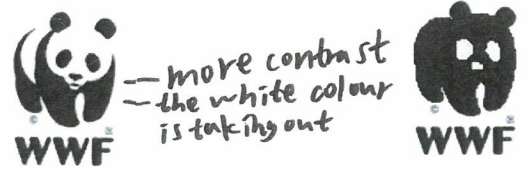 WWF
— more contrast
— the white colour
is taking out
WWF